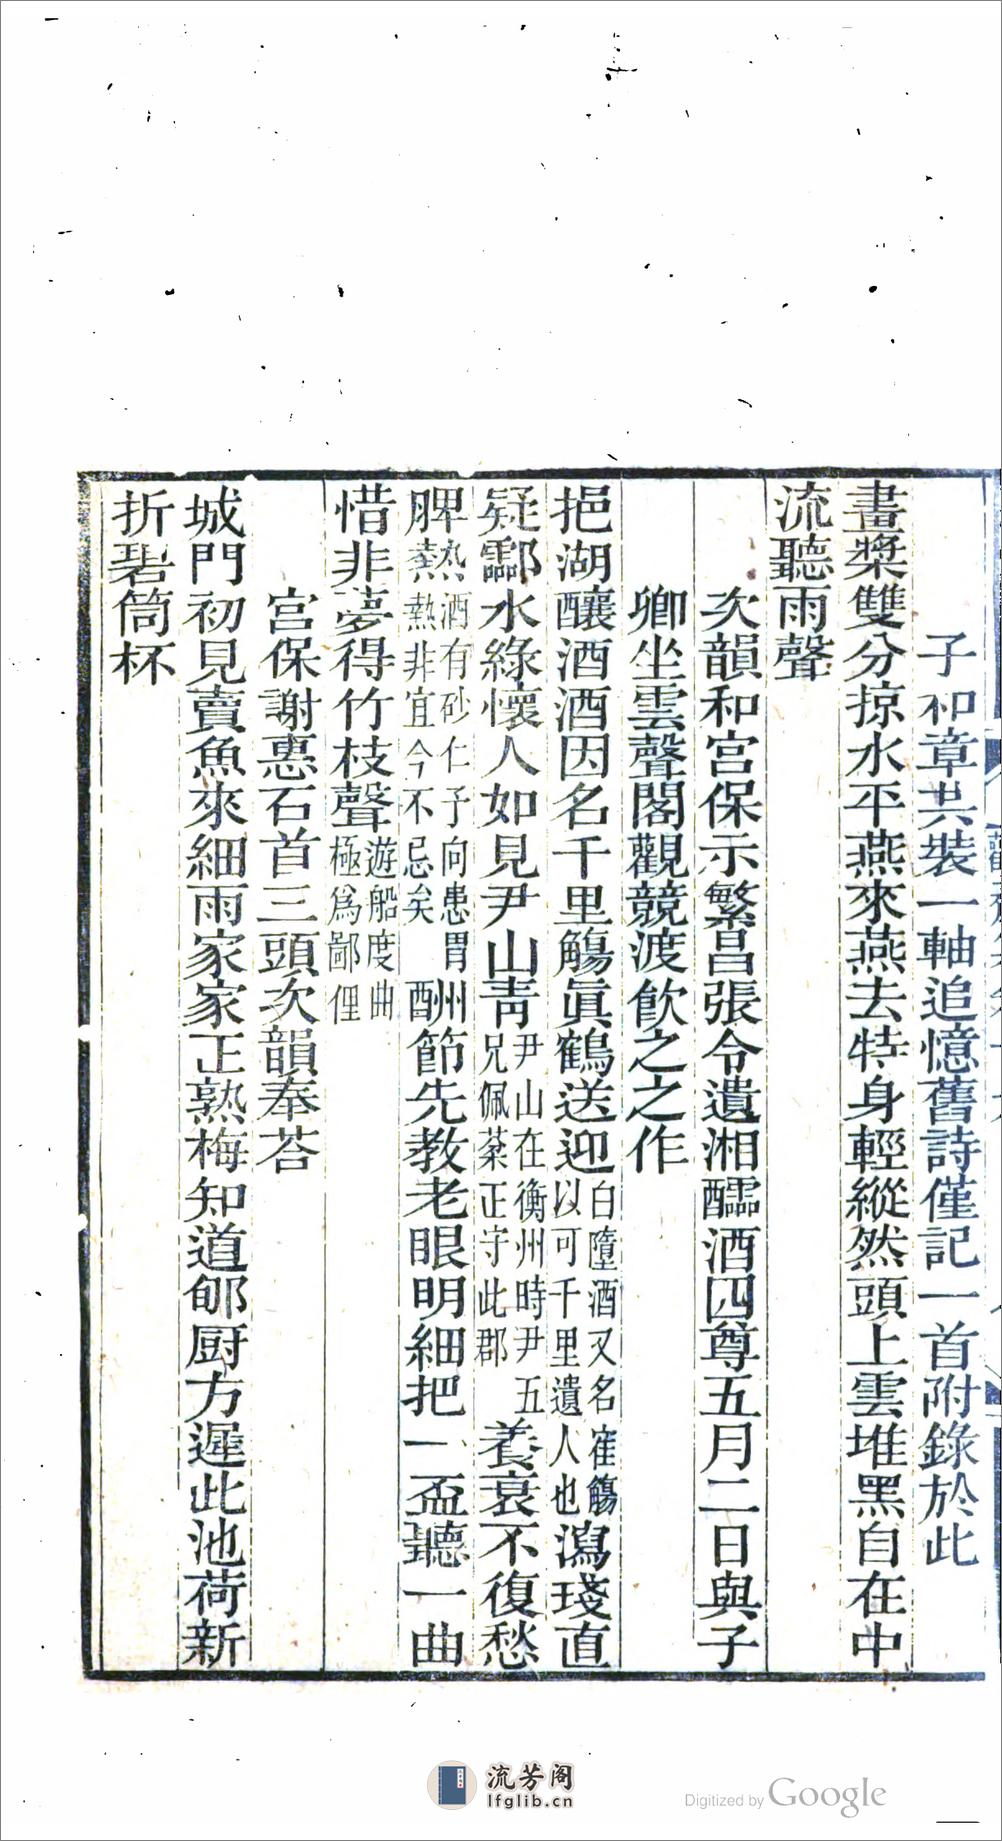 子和章共裝一軸追憶舊詩僅記一首附錄於此
畫槳雙分掠水平燕來燕去特身輕縱然頭上雲堆黑自在中
流聽雨聲
次韻和宮保示繁昌張令遺湘醽酒四尊五月二日與子
卿坐雲聲閣觀競渡飲之之作
挹湖釀酒酒因名千里觴眞鶴送迎白墮酒又名隺觴以可千里遺人也瀉琖直
疑酃水綠懷人如見尹山青尹山在衡州時尹五兄佩棻正守此郡養衰不復愁
脾熱酒有砂仁予向患胃熱非宜今不忌矣酬節先教老眼明細把一盃聽一曲
惜非夢得竹枝聲遊船度曲極爲鄙俚
宮保謝惠石首三頭次韻奉荅
城門初見賣魚來細雨家家正熟梅知道郇厨方遲此池荷新
折碧筒杯
流芳阁
lfglib.cn
Digitized by Google